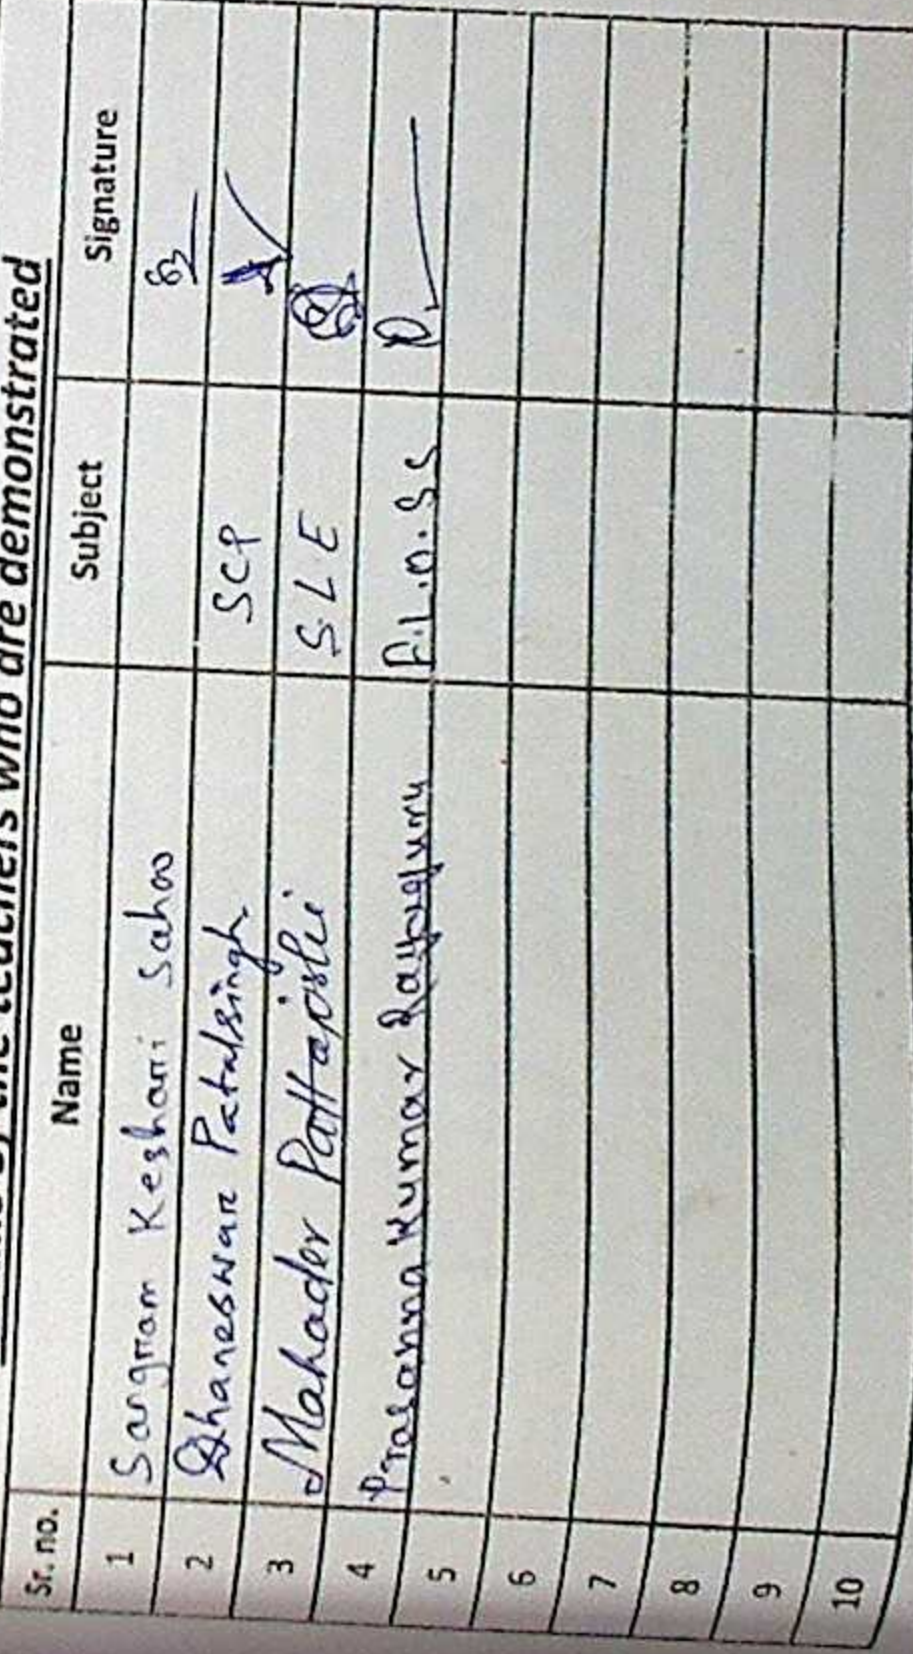 the teachers who are demonstrated
Sr. no. Name Subject Signature
1 Sangram Keshari Sahoo
2 Dhaneswar Patalsingh SCP
3 Mahadev Pattajoshi SLE
4 Prasanna Kumar Rayaguru
5
6
7
8
9
10